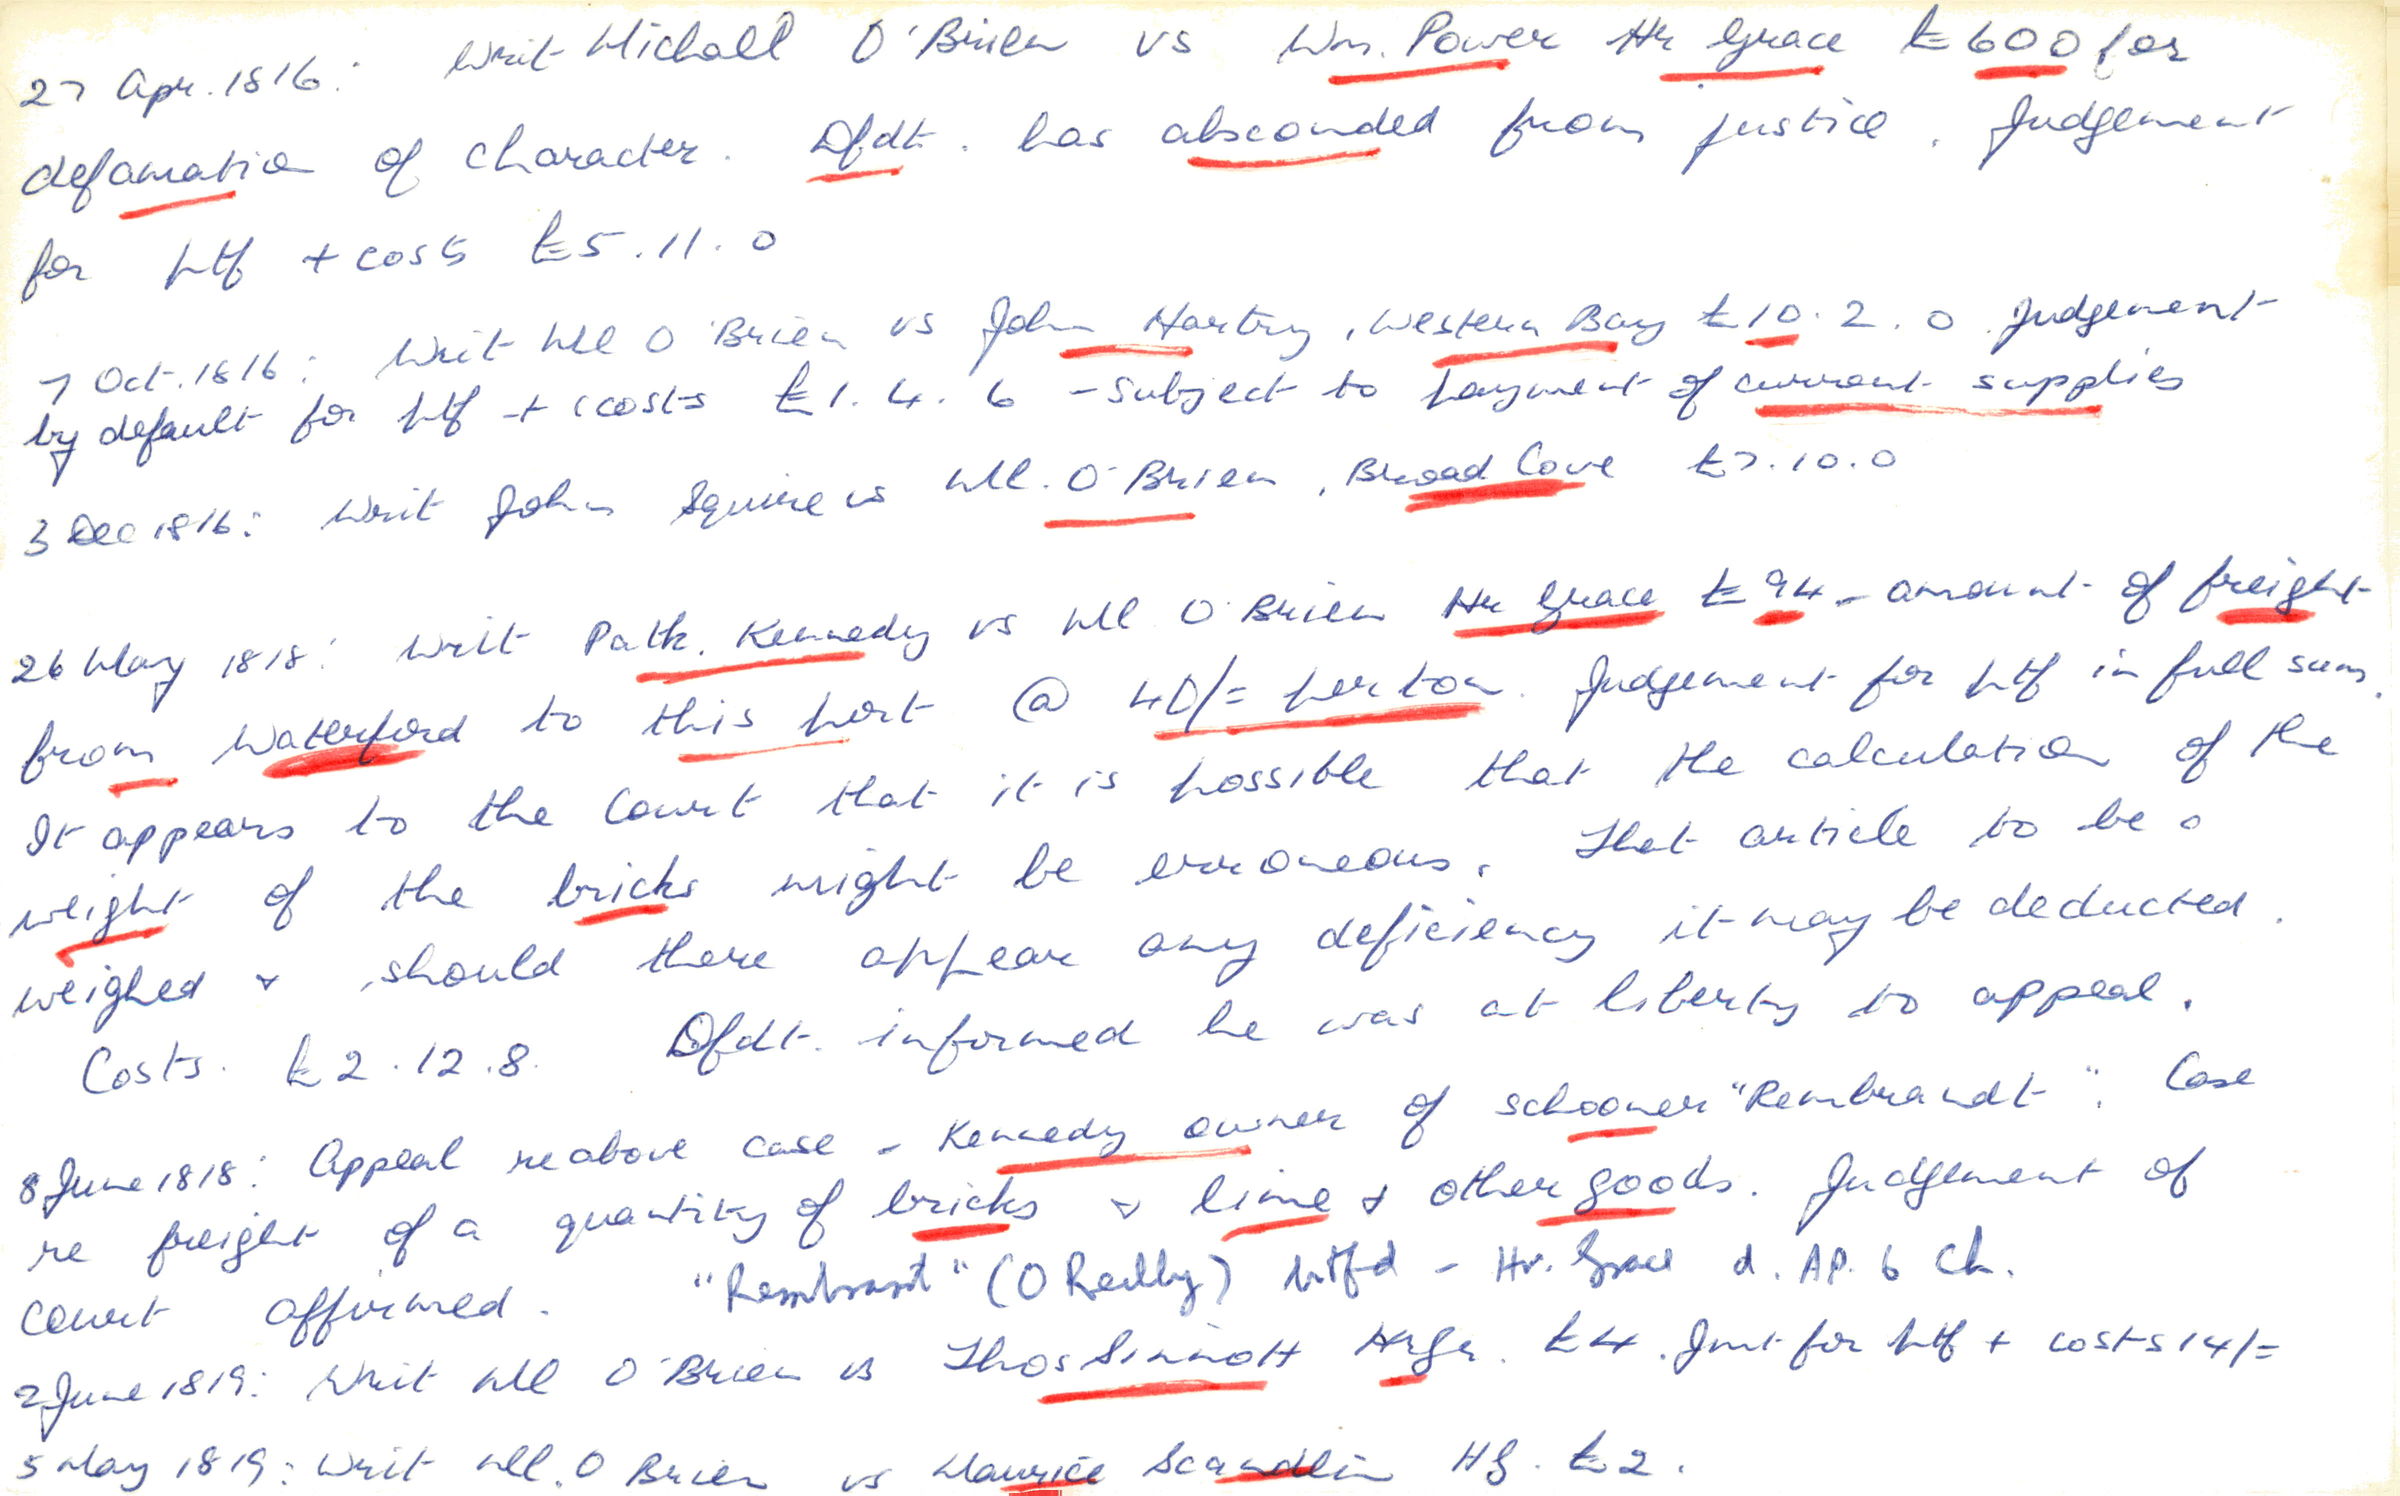 27 Apr. 1816: Writ Michall O'Brien vs Wm. Power Hr Grace £600 for
defamation of character. Dfdt. has absconded from justice. Judgement
for ptf + costs £5.11.0
7 Oct. 1816: Writ Mll O'Brien vs John Hartry, Western Bay £10.2.0. Judgement
by default for ptf + costs £1.4.6 - subject to payment of current supplies
3 Dec 1816: Writ John Squire vs Mll. O'Brien, Broad Cove £7.10.0
26 May 1818: Writ Patk. Kennedy vs Mll O'Brien Hr Grace £94 - amount of freight
from Waterford to this port @ 40/= per ton. Judgement for ptf in full sum.
It appears to the Court that it is possible that the calculation of the
weight of the bricks might be erroneous. That article to be
weighed & should there appear any deficiency it may be deducted.
Costs. £2.12.8. Dfdt. informed he was at liberty to appeal.
8 June 1818: Appeal re above case - Kennedy owner of schooner "Rembrandt". Case
re freight of a quantity of bricks & lime & other goods. Judgement of
Court affirmed. "Rembrant" (O Reilly) Wtfd - Hr. Grace d. AP. 6 Ck.
2 June 1819: Writ Mll O'Brien vs Thos Sinnott Hr Gr. £4. Jmt for ptf + costs 14/=
5 May 1819: Writ Mll. O Brien vs Maurice Scandlin HG. £2.